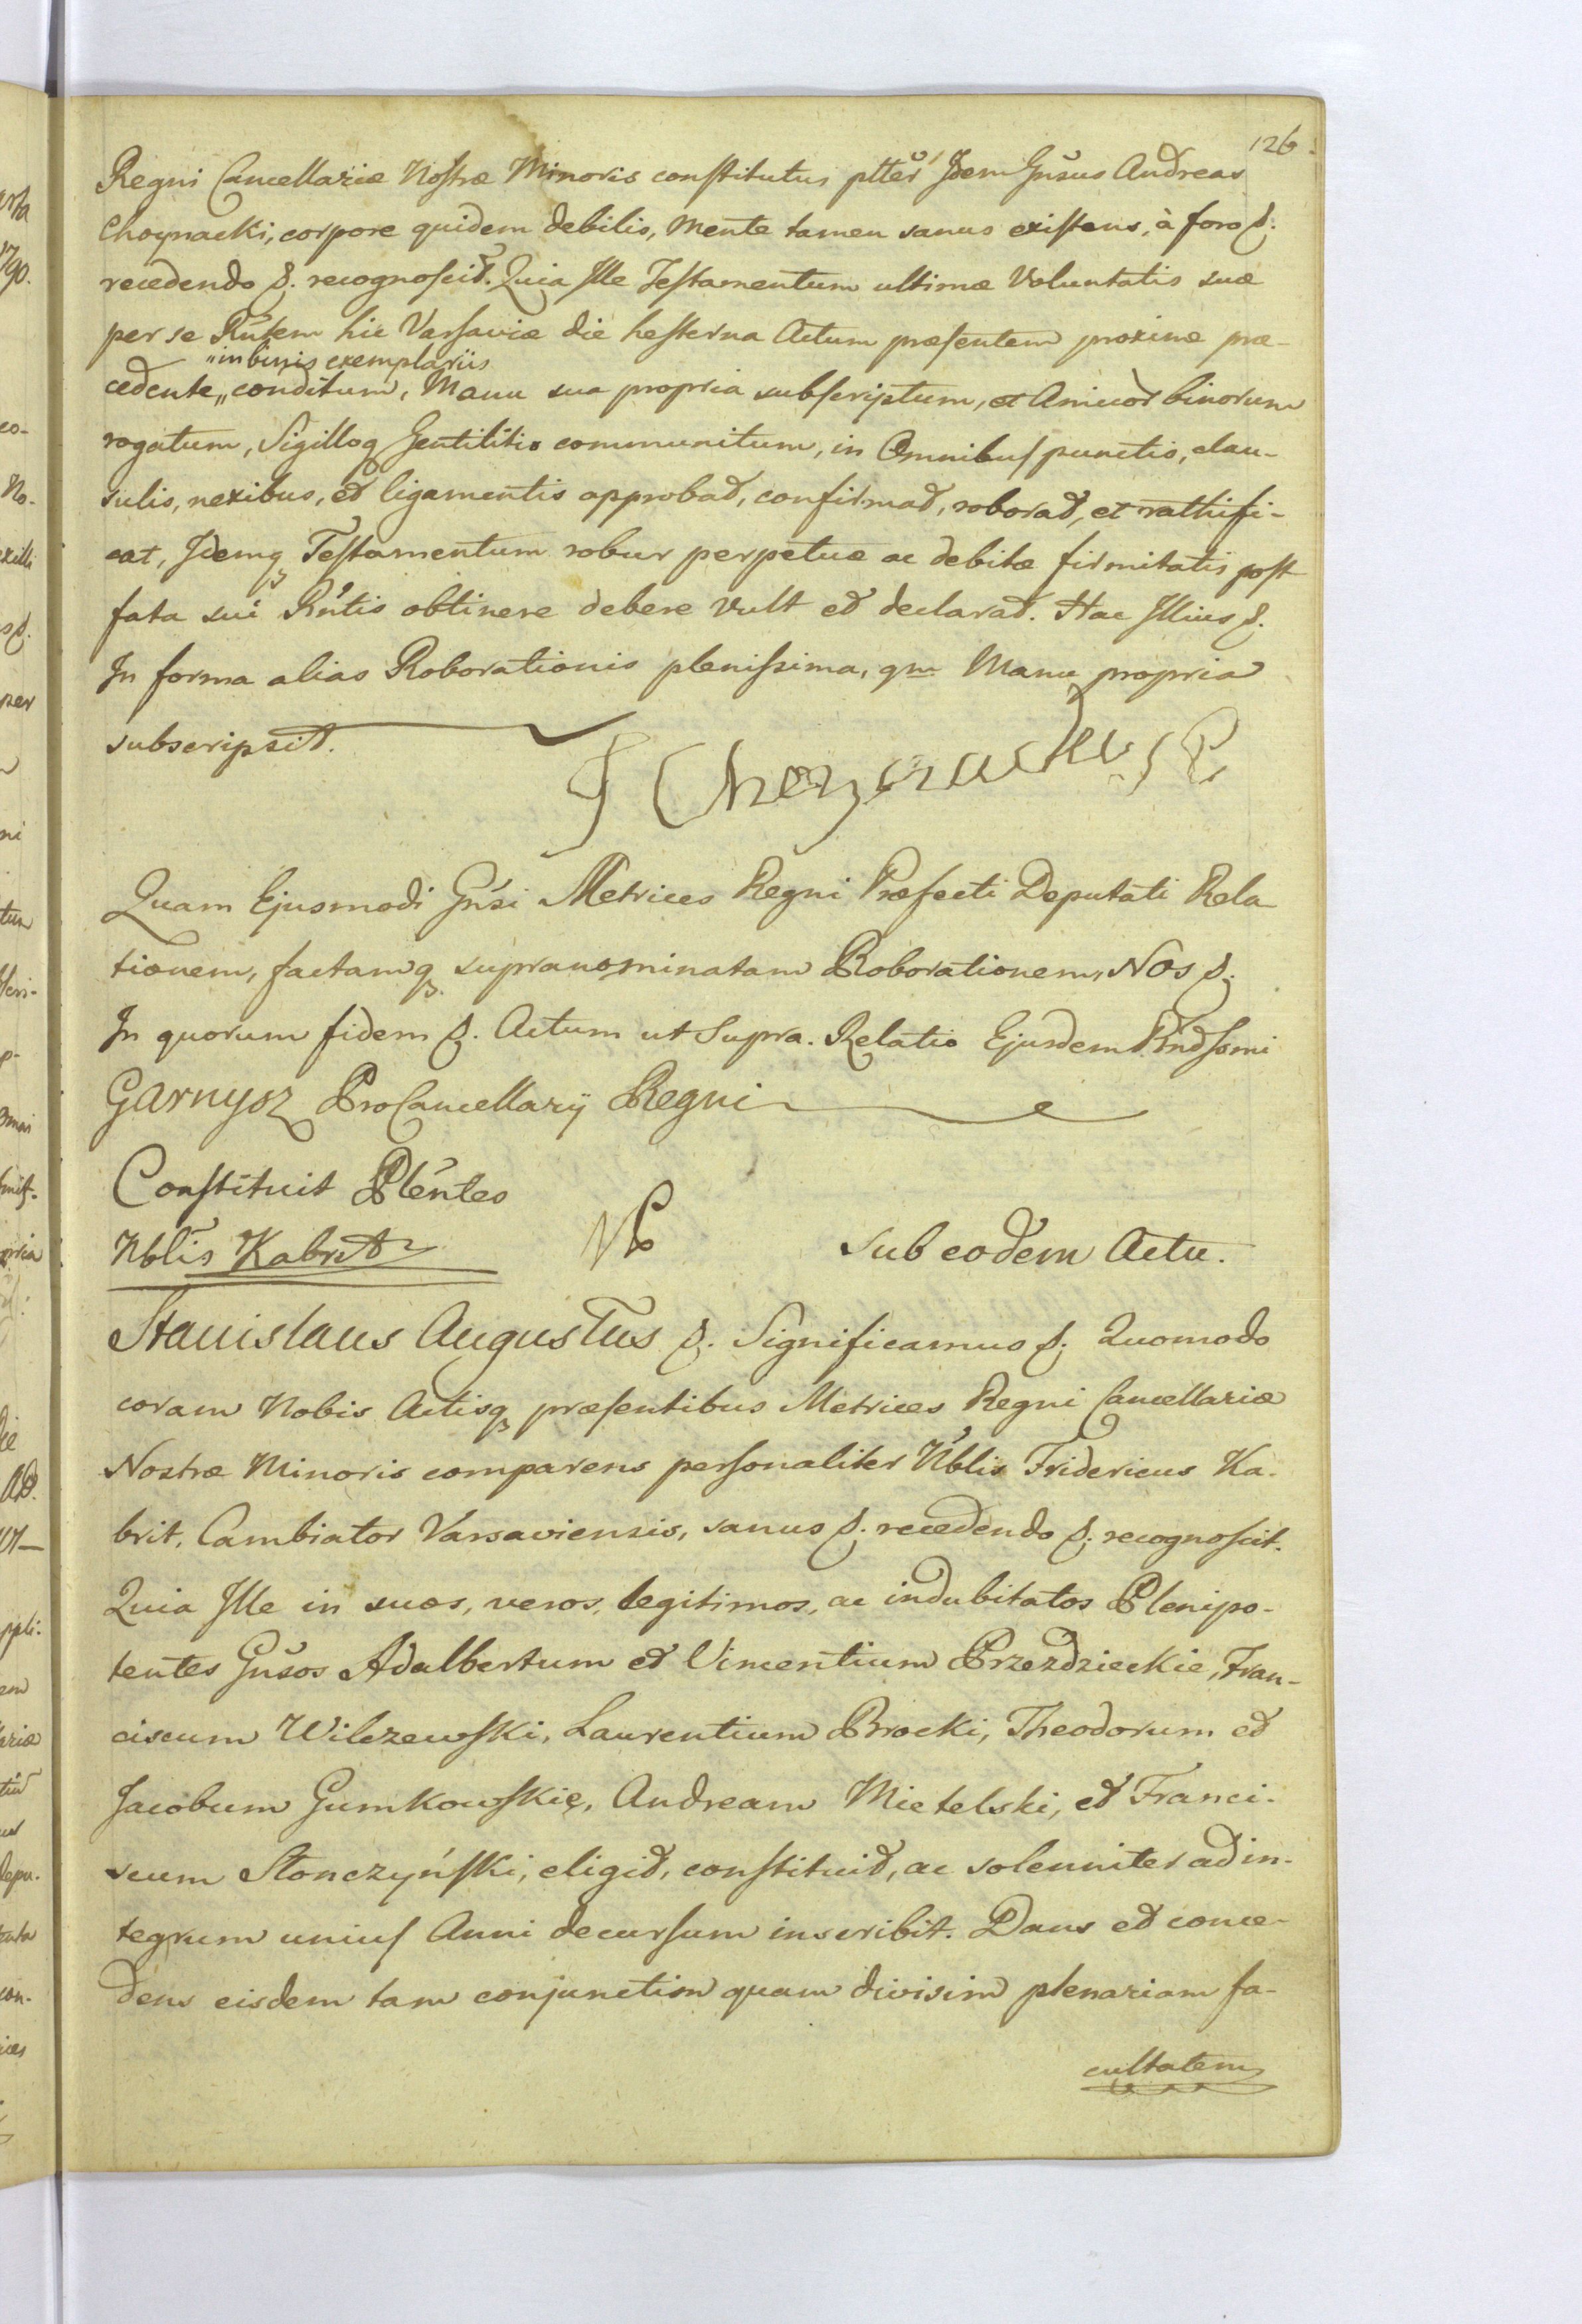 126.
Regni Cancellariæ Nostræ Minoris constitutus ptter Idem Gnsus Andreas
Choynacki, corpore quidem debilis, Mente tamen sanus existens, à foro &.
recedendo &. recognoscit. Quia Ille Testamentum ultimæ Voluntatis suæ
per se Rntem hic Varsaviæ die hesterna Actum præsentem proxime præ-
"in binis exemplariis
cedente„ conditum, Manu sua propria subscriptum, et Amicor binorum
rogatum, Sigilloq Gentilitio communitum, in Omnibus punctis, clau-
sulis, nexibus, et ligamentis approbat, confirmat, roborat, et rathifi-
cat, Idemq Testamentum robur perpetuæ ac debitæ firmitatis post
fata sui Rntis obtinere debere vult et declarat. Hac Illius &.
In forma alias Roborationis plenissima, qm Manu propria
subscripsit.
Quam Ejusmodi Gnsi Metrices Regni Præfecti Deputati Rela-
tionem, factamq supranominatam Roborationem, Nos &.
In quorum fidem &. Actum ut Supra. Relatio Ejusdem Rndssmi
Garnysz ProCancellarij Regni
Constituit Plentes
Nblis Kabrit
Sub eodem Actu.
Stanislaus Augustus &. Significamus &. Quomodo
coram Nobis Actisq præsentibus Metrices Regni Cancellariæ
Nostræ Minoris comparens personaliter Nblis Fridericus Ka-
brit, Cambiator Varsaviensis, sanus &. recedendo &. recognoscit.
Quia Ille in suos, veros, legitimos, ac indubitatos Plenipo-
tentes Gnsos Adalbertum et Vincentium Przezdzieckie, Fran-
ciscum Wilczewski, Laurentium Brocki, Theodorum et
Jacobum Gumkowskię, Andream Mietelski, et Franci-
scum Słonczyński, eligit, constituit, ac solenniter ad in-
tegrum unius Anni decursum inscribit. Dans et conce-
dens eisdem tam conjunctim quam divisim plenariam fa-
cultatem